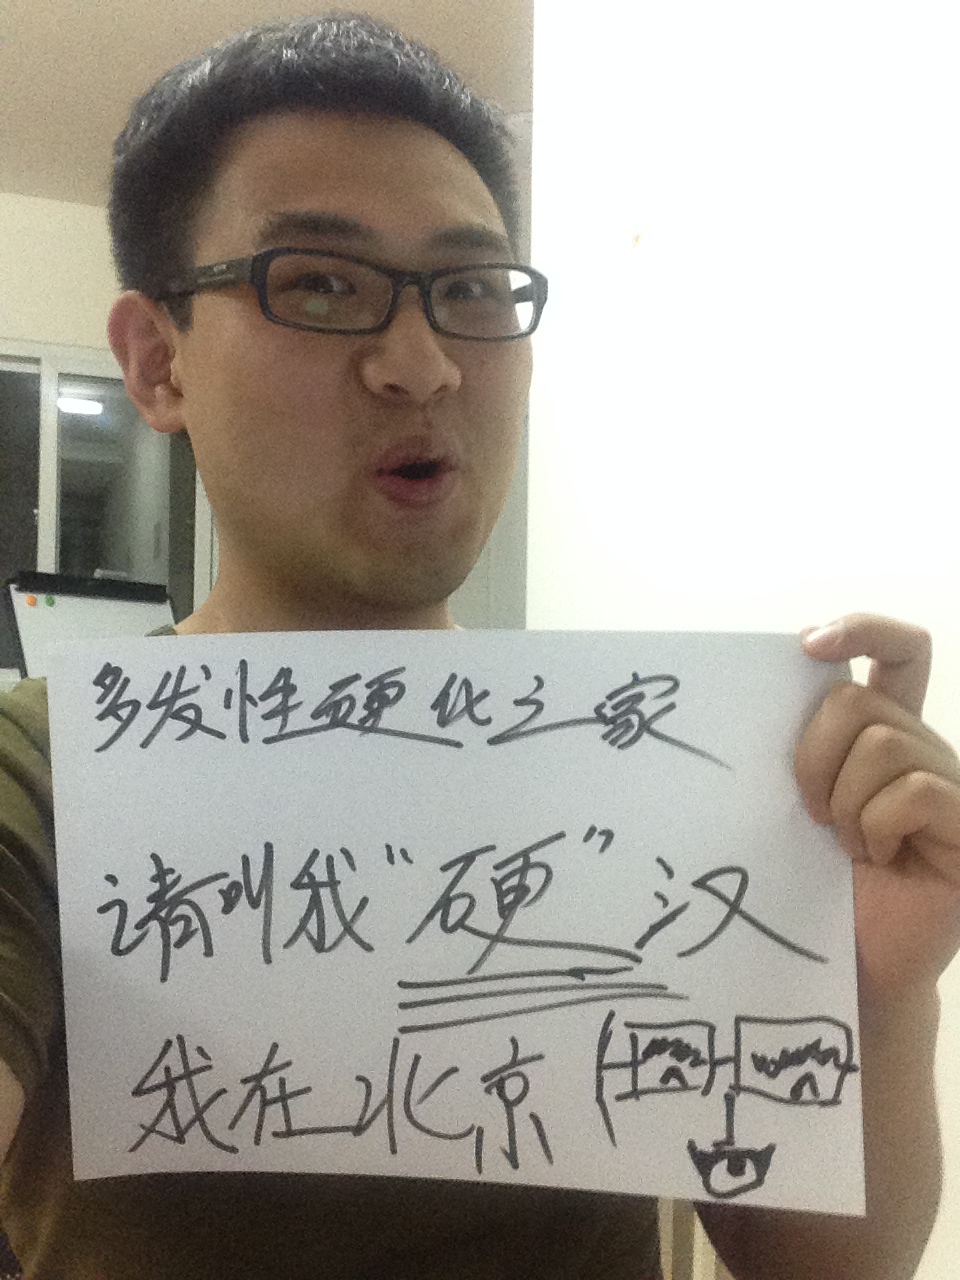 多发性硬化之家
请叫我“硬”汉
我在北京